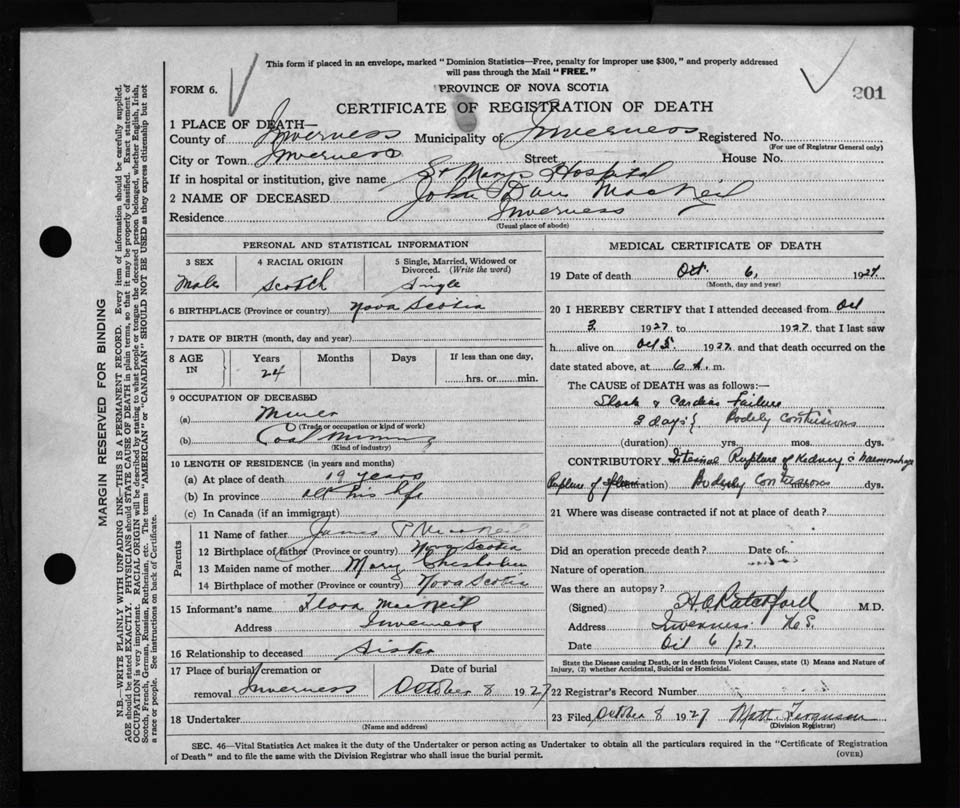 This form if placed in an envelope, marked "Dominion Statistics—Free, penalty for improper use $300," and properly addressed
will pass through the Mail "FREE."
FORM 6.
PROVINCE OF NOVA SCOTIA
201
CERTIFICATE OF REGISTRATION OF DEATH
1 PLACE OF DEATH—
County of Inverness Municipality of Inverness Registered No.
(For use of Registrar General only)
City or Town Inverness Street House No.
If in hospital or institution, give name St Marys Hospital
2 NAME OF DECEASED John Dan MacNeil
Residence Inverness
(Usual place of abode)
PERSONAL AND STATISTICAL INFORMATION
3 SEX 4 RACIAL ORIGIN 5 Single, Married, Widowed or
Divorced. (Write the word)
Male Scotch Single
6 BIRTHPLACE (Province or country) Nova Scotia
7 DATE OF BIRTH (month, day and year)
8 AGE Years Months Days If less than one day,
IN 24 hrs. or min.
9 OCCUPATION OF DECEASED
(a) Miner
(Trade or occupation or kind of work)
(b) Coal Mining
(Kind of industry)
10 LENGTH OF RESIDENCE (in years and months)
(a) At place of death 19 years
(b) In province all his life
(c) In Canada (if an immigrant)
Parents
11 Name of father James MacNeil
12 Birthplace of father (Province or country) Nova Scotia
13 Maiden name of mother Mary Chisholm
14 Birthplace of mother (Province or country) Nova Scotia
15 Informant's name Flora MacNeil
Address Inverness
16 Relationship to deceased Sister
17 Place of burial cremation or Date of burial
removal Inverness October 8 1927
18 Undertaker
(Name and address)
MEDICAL CERTIFICATE OF DEATH
19 Date of death Oct. 6, 1927
(Month, day and year)
20 I HEREBY CERTIFY that I attended deceased from Oct
3 1927 to 1927 that I last saw
h alive on Oct 5 1927 and that death occurred on the
date stated above, at 6 A. m.
The CAUSE of DEATH was as follows:—
Shock & Cardiac Failure
3 days Bodily Contusions
(duration) yrs. mos. dys.
CONTRIBUTORY Internal Rupture of Kidney
Rupture of (duration) Bodily Contusions mos. dys.
21 Where was disease contracted if not at place of death?
Did an operation precede death? Date of
Nature of operation
Was there an autopsy?
(Signed) M.D.
Address Inverness N.S.
Date Oct 6/27.
State the Disease causing Death, or in death from Violent Causes, state (1) Means and Nature of
Injury, (2) whether Accidental, Suicidal or Homicidal.
22 Registrar's Record Number
23 Filed October 8 1927 Matt. Ferguson
(Division Registrar)
SEC. 46—Vital Statistics Act makes it the duty of the Undertaker or person acting as Undertaker to obtain all the particulars required in the "Certificate of Registration
of Death" and to file the same with the Division Registrar who shall issue the burial permit.
(OVER)
MARGIN RESERVED FOR BINDING
N.B.—WRITE PLAINLY WITH UNFADING INK—THIS IS A PERMANENT RECORD. Every item of information should be carefully supplied.
AGE should be stated EXACTLY. PHYSICIANS should STATE CAUSE OF DEATH in plain terms, so that it may be properly classified. Exact statement of
OCCUPATION is very important. RACIAL ORIGIN will be described by stating to what people or tongue the deceased person belonged, whether English, Irish,
Scotch, French, German, Russian, Ruthenian, etc. The terms "AMERICAN" or "CANADIAN" SHOULD NOT BE USED as they express citizenship but not
a race or people. See instructions on back of Certificate.